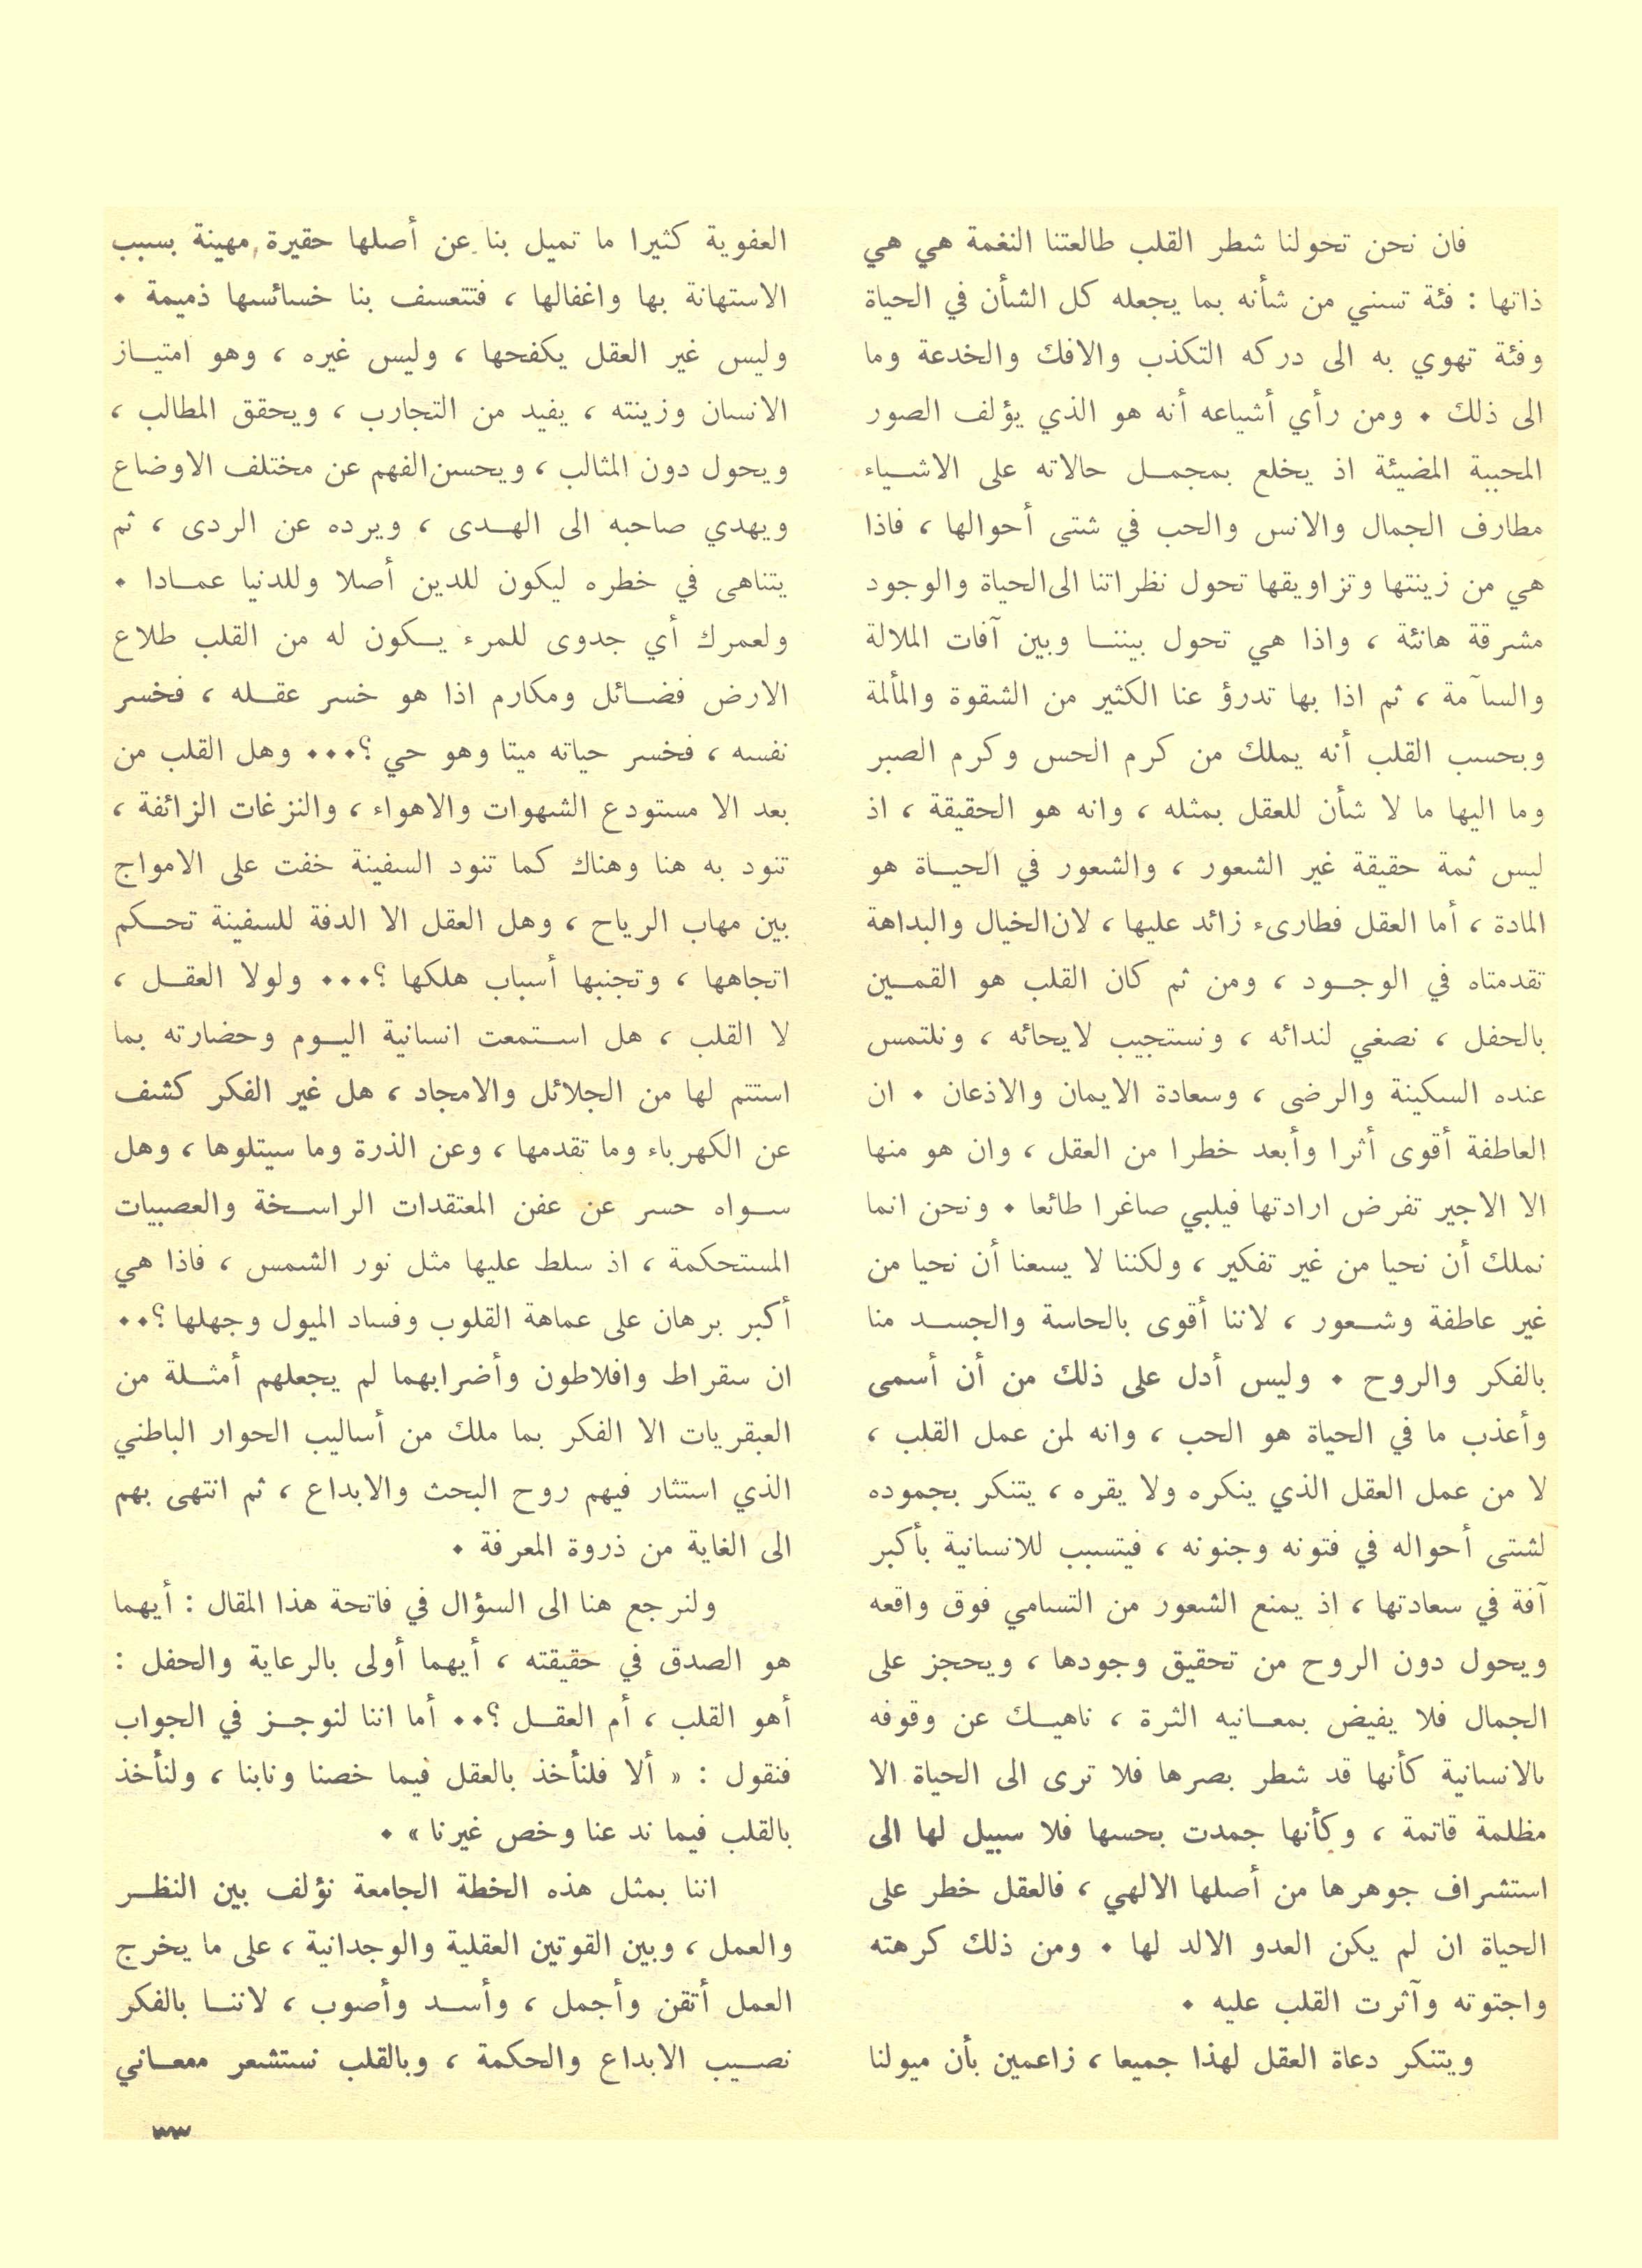 فان نحن تحولنا شطر القلب طالعتنا النغمة هي هي
ذاتها : فئة تسني من شأنه بما يجعله كل الشأن في الحياة
وفئة تهوي به الى دركه التكذب والافك والخدعة وما
الى ذلك ٠ ومن رأي أشياعه أنه هو الذي يؤلف الصور
المحببة المضيئة اذ يخلع بمجمـل حالاته على الاشـياء
مطارف الجمال والانس والحب في شتى أحوالها ، فاذا
هي من زينتها وتزاويقها تحول نظراتنا الى الحياة والوجود
مشرقة هانئة ، واذا هي تحول بيننـا وبين آفات الملالة
والسآمة ، ثم اذا بها تدرؤ عنا الكثير من الشقوة والمألمة
وبحسب القلب أنه يملك من كرم الحس وكرم الصبر
وما اليها ما لا شأن للعقل بمثله ، وانه هو الحقيقة ، اذ
ليس ثمة حقيقة غير الشعور ، والشعور في الحيـاة هو
المادة ، أما العقل فطارىء زائد عليها ، لان الخيال والبداهة
تقدمتاه في الوجـود ، ومن ثم كان القلب هو القمـين
بالحفل ، نصغي لندائه ، ونستجيب لايحائه ، ونلتمس
عنده السكينة والرضى ، وسعادة الايمان والاذعان ٠ ان
العاطفة أقوى أثرا وأبعد خطرا من العقل ، وان هو منها
الا الاجير تفرض ارادتها فيلبي صاغرا طائعا ٠ ونحن انما
نملك أن نحيا من غير تفكير ، ولكننا لا يسعنا أن نحيا من
غير عاطفة وشـعور ، لاننا أقوى بالحاسة والجسـد منا
بالفكر والروح ٠ وليس أدل على ذلك من أن أسمى
وأعذب ما في الحياة هو الحب ، وانه لمن عمل القلب ،
لا من عمل العقل الذي ينكره ولا يقره ، يتنكر بجموده
لشتى أحواله في فتونه وجنونه ، فيتسبب للانسانية بأكبر
آفة في سعادتها ، اذ يمنع الشعور من التسامي فوق واقعه
ويحول دون الروح من تحقيق وجودها ، ويحجز على
الجمال فلا يفيض بمعـانيه الثرة ، ناهيـك عن وقوفه
بالانسانية كأنها قد شطر بصرها فلا ترى الى الحياة الا
مظلمة قاتمة ، وكأنها جمدت بحسها فلا سبيل لها الى
استشراف جوهرها من أصلها الالهي ، فالعقل خطر على
الحياة ان لم يكن العدو الالد لها ٠ ومن ذلك كرهته
واجتوته وآثرت القلب عليه ٠
ويتنكر دعاة العقل لهذا جميعا ، زاعمين بأن ميولنا
العفوية كثيرا ما تميل بنا عن أصلها حقيرة مهينة بسبب
الاستهانة بها واغفالها ، فتتعسف بنا خسائسها ذميمة ٠
وليس غير العقل يكفحها ، وليس غيره ، وهو امتيـاز
الانسان وزينته ، يفيد من التجارب ، ويحقق المطالب ،
ويحول دون المثالب ، ويحسن الفهم عن مختلف الاوضاع
ويهدي صاحبه الى الهـدى ، ويرده عن الردى ، ثم
يتناهى في خطره ليكون للدين أصلا وللدنيا عمـادا ٠
ولعمرك أي جدوى للمرء يـكون له من القلب طلاع
الارض فضـائل ومكارم اذا هو خسر عقـله ، فخسر
نفسه ، فخسر حياته ميتا وهو حي ؟٠٠٠ وهل القلب من
بعد الا مستودع الشهوات والاهواء ، والنزغات الزائفة ،
تنود به هنا وهناك كما تنود السفينة خفت على الامواج
بين مهاب الرياح ، وهل العقل الا الدفة للسفينة تحـكم
اتجاهها ، وتجنبها أسباب هلكها ؟٠٠٠ ولولا العقـل ،
لا القلب ، هل اسـتمعت انسانية اليـوم وحضارته بما
استتم لها من الجلائل والامجاد ، هل غير الفكر كشف
عن الكهرباء وما تقدمها ، وعن الذرة وما سيتلوها ، وهل
سـواه حسر عن عفن المعتقدات الراسـخة والعصبيات
المستحكمة ، اذ سلط عليها مثل نور الشمس ، فاذا هي
أكبر برهان على عماهة القلوب وفساد الميول وجهلها ؟٠٠
ان سقراط وافلاطون وأضرابهما لم يجعلهم أمثـلة من
العبقريات الا الفكر بما ملك من أساليب الحوار الباطني
الذي استثار فيهم روح البحث والابداع ، ثم انتهى بهم
الى الغاية من ذروة المعرفة ٠
ولنرجع هنا الى السؤال في فاتحة هذا المقال : أيهما
هو الصدق في حقيقته ، أيهما أولى بالرعاية والحفل :
أهو القلب ، أم العقـل ؟٠٠ أما اننا لنوجـز في الجواب
فنقول : « ألا فلنأخذ بالعقل فيما خصنا ونابنا ، ولنأخذ
بالقلب فيما ند عنا وخص غيرنا » ٠
اننا بمثل هذه الخطة الجامعة نؤلف بين النظـر
والعمل ، وبين القوتين العقلية والوجدانية ، على ما يخرج
العمل أتقن وأجمل ، وأسـد وأصوب ، لاننـا بالفكر
نصـيب الابداع والحكمة ، وبالقلب نستشعر ممعـاني
٣٣